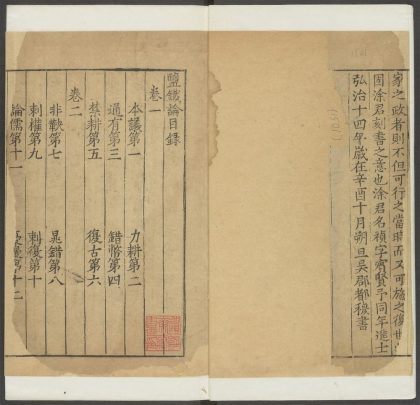 家之政者則不但可行之當時而又可施之後世
固涂君刻書之意也涂君名禎字賓賢予同年進士
弘治十四年歲在辛酉十月朔旦吳郡都穆書
鹽鐵論目錄
卷一
本議第一 力耕第二
通有第三 錯幣第四
禁耕第五 復古第六
卷二
非鞅第七 晁錯第八
刺權第九 刺復第十
論儒第十一 第十二